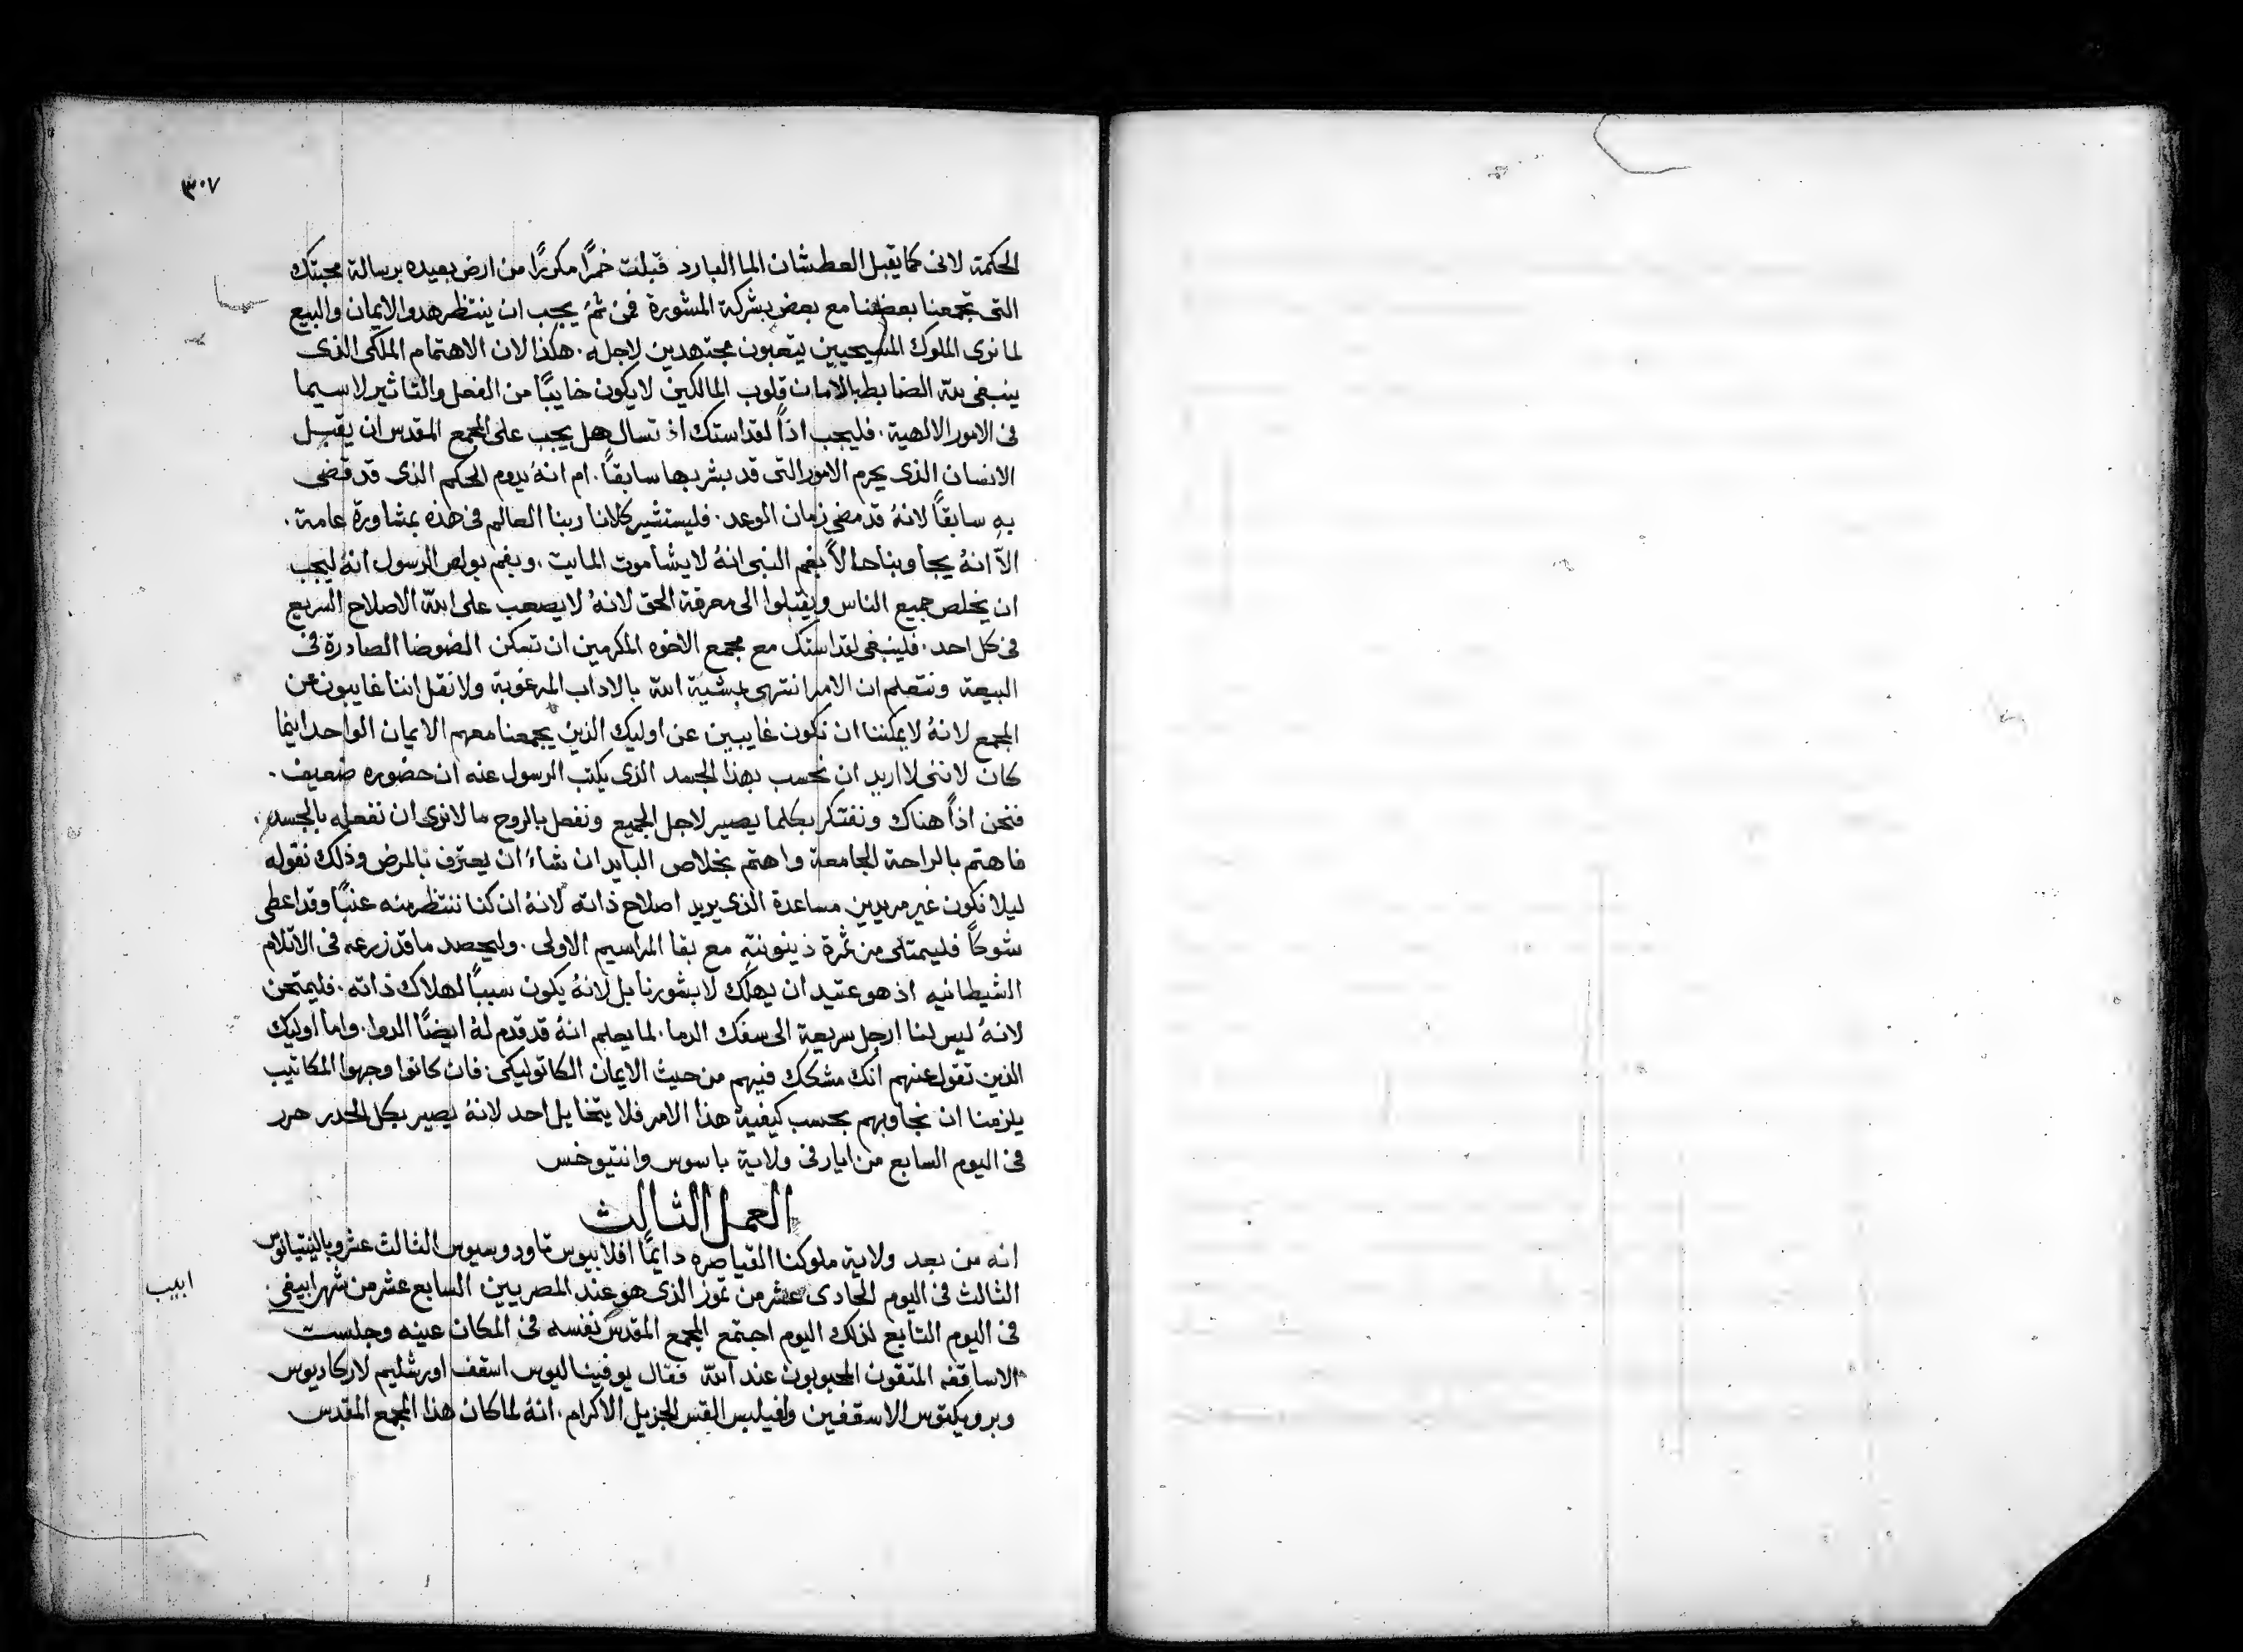 ٣٠٧
الحكمة لانى كما يقبل العطشان الما البارد قبلت خمرًا مكررًا من ارض بعيده برسالة محبتك
التى تجمعنا بعضنا مع بعض بشركة المشورة فمن ثمُ يجب ان ينتظر هدو الايمان والبيع
لما نرى الملوك المسيحيين يتعبون مجتهدين لاجله. هكذا لان الاهتمام الملكى الذى
ينبغى لله الضابط بالامان قلوب المالكين لا يكون خايبًا من الفعل والتاثير لا سيما
فى الامور الالهية. فليجب اذاً لقداستك اذ تسال هل يجب على المجمع المقدس ان يقبل
الانسان الذى يحرم الامور التى قد بشر بها سابقاً. ام انهُ يدوم الحكم الذى قد قضى
بهِ سابقاً لانهُ قد مضى زمان الوعد. فليستشير كلانا ربنا العالم فى هذه بمشاورة عامة.
الاّ انهُ يجاوبنا حالاً بفم النبى انهُ لا يشا موت المايت. وبفم بولص الرسول انهُ ليجب
ان يخلص جميع الناس ويقبلوا الى معرفة الحق لانهُ لا يصعب على الله الاصلاح السريع
فى كل احد. فلينبغى لقداستك مع مجمع الاخوه المكرمين ان تسكن الضوضا الصادرة فى
البيعة ونتعلم ان الامر انتهى بمشية الله بالاداب المرغوبة ولا نقل اننا غايبون عن
المجمع لانهُ لا يمكننا ان نكون غايبين عن اوليك الذين يجمعنا معهم الايمان الواحد اينما
كان لاننى لا اريد ان نحسب بهذا الجسد الذى يكتب الرسول عنه ان حضوره ضعيف.
فنحن اذاً هناك ونفتكر بكلما يصير لاجل الجميع ونفعل بالروح ما لا نرى ان نفعله بالجسد.
فاهتم بالراحة الجامعة واهتم بخلاص البايد ان شاء ان يعترف بالمرض وذلك نقوله
ليلا نكون غير مريدين مساعدة الذى يريد اصلاح ذاته لانهُ ان كنا ننتظر منه عنبًا وقد اعطى
شوكاً فليمتلى من ثمرة ذينونته مع بقا المراسيم الاولى. وليحصد ما قد زرعه فى الاتلام
الشيطانيه اذ هو عتيد ان يهلك لا بشورنا بل لانهُ يكون سببًا لهلاك ذاته. فليمتحن
لانهُ ليس لنا ارجل سريعة الى سفك الدما. لما يعلم انهُ قد قدم لهُ ايضًا الدوا. واما اوليك
الذين تقول عنهم انك مشكك فيهم من حيث الايمان الكاتوليكى: فان كانوا وجهوا المكاتيب
يلزمنا ان نجاوبهم بحسب كيفية هذا الامر فلا يتخايل احد لانهُ يصير بكل الحدر حرر
فى اليوم السابع من ايار فى ولاية باسوس وانتيوخس
العمل الثالث
انه من بعد ولاية ملوكنا القياصره دايمًا افلابيوس تاودوسيوس الثالث عشر وبالينتيانوس
الثالث فى اليوم الحادى عشر من تموز الذى هو عند المصريين السابع عشر من شهر ابيفى.
ابيب
فى اليوم التابع لذلك اليوم اجتمع المجمع المقدس نفسه فى المكان عينه وجلست
الاساقفه المتقون المحبوبون عند الله فقال يوفيناليوس اسقف اورشليم لاركاديوس
وبرويكتوس الاسقفين ولفيليبس القس الجزيل الاكرام. انهُ لما كان هذا المجمع المقدس